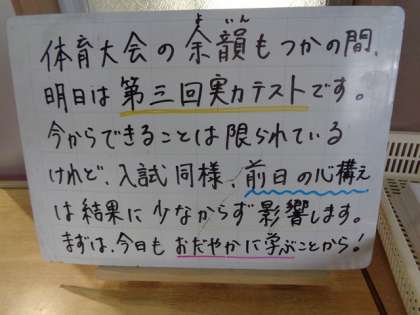 体育大会の余韻もつかの間、
明日は第三回実力テストです。
今からできることは限られている
けれど、入試同様、前日の心構え
は結果に少なからず影響します。
まずは、今日もおだやかに学ぶことから!